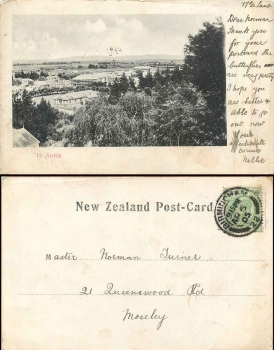 Dear Norman
Thank you
for your
postcard the
butterflies
are very pretty
I hope you
are better &
able to go
out now
Your
affectionate
Nellie
Te Aroha
New Zealand Post-Card
Master Norman Turner
21 Queenswood Rd
Moseley
BIRMINGHAM